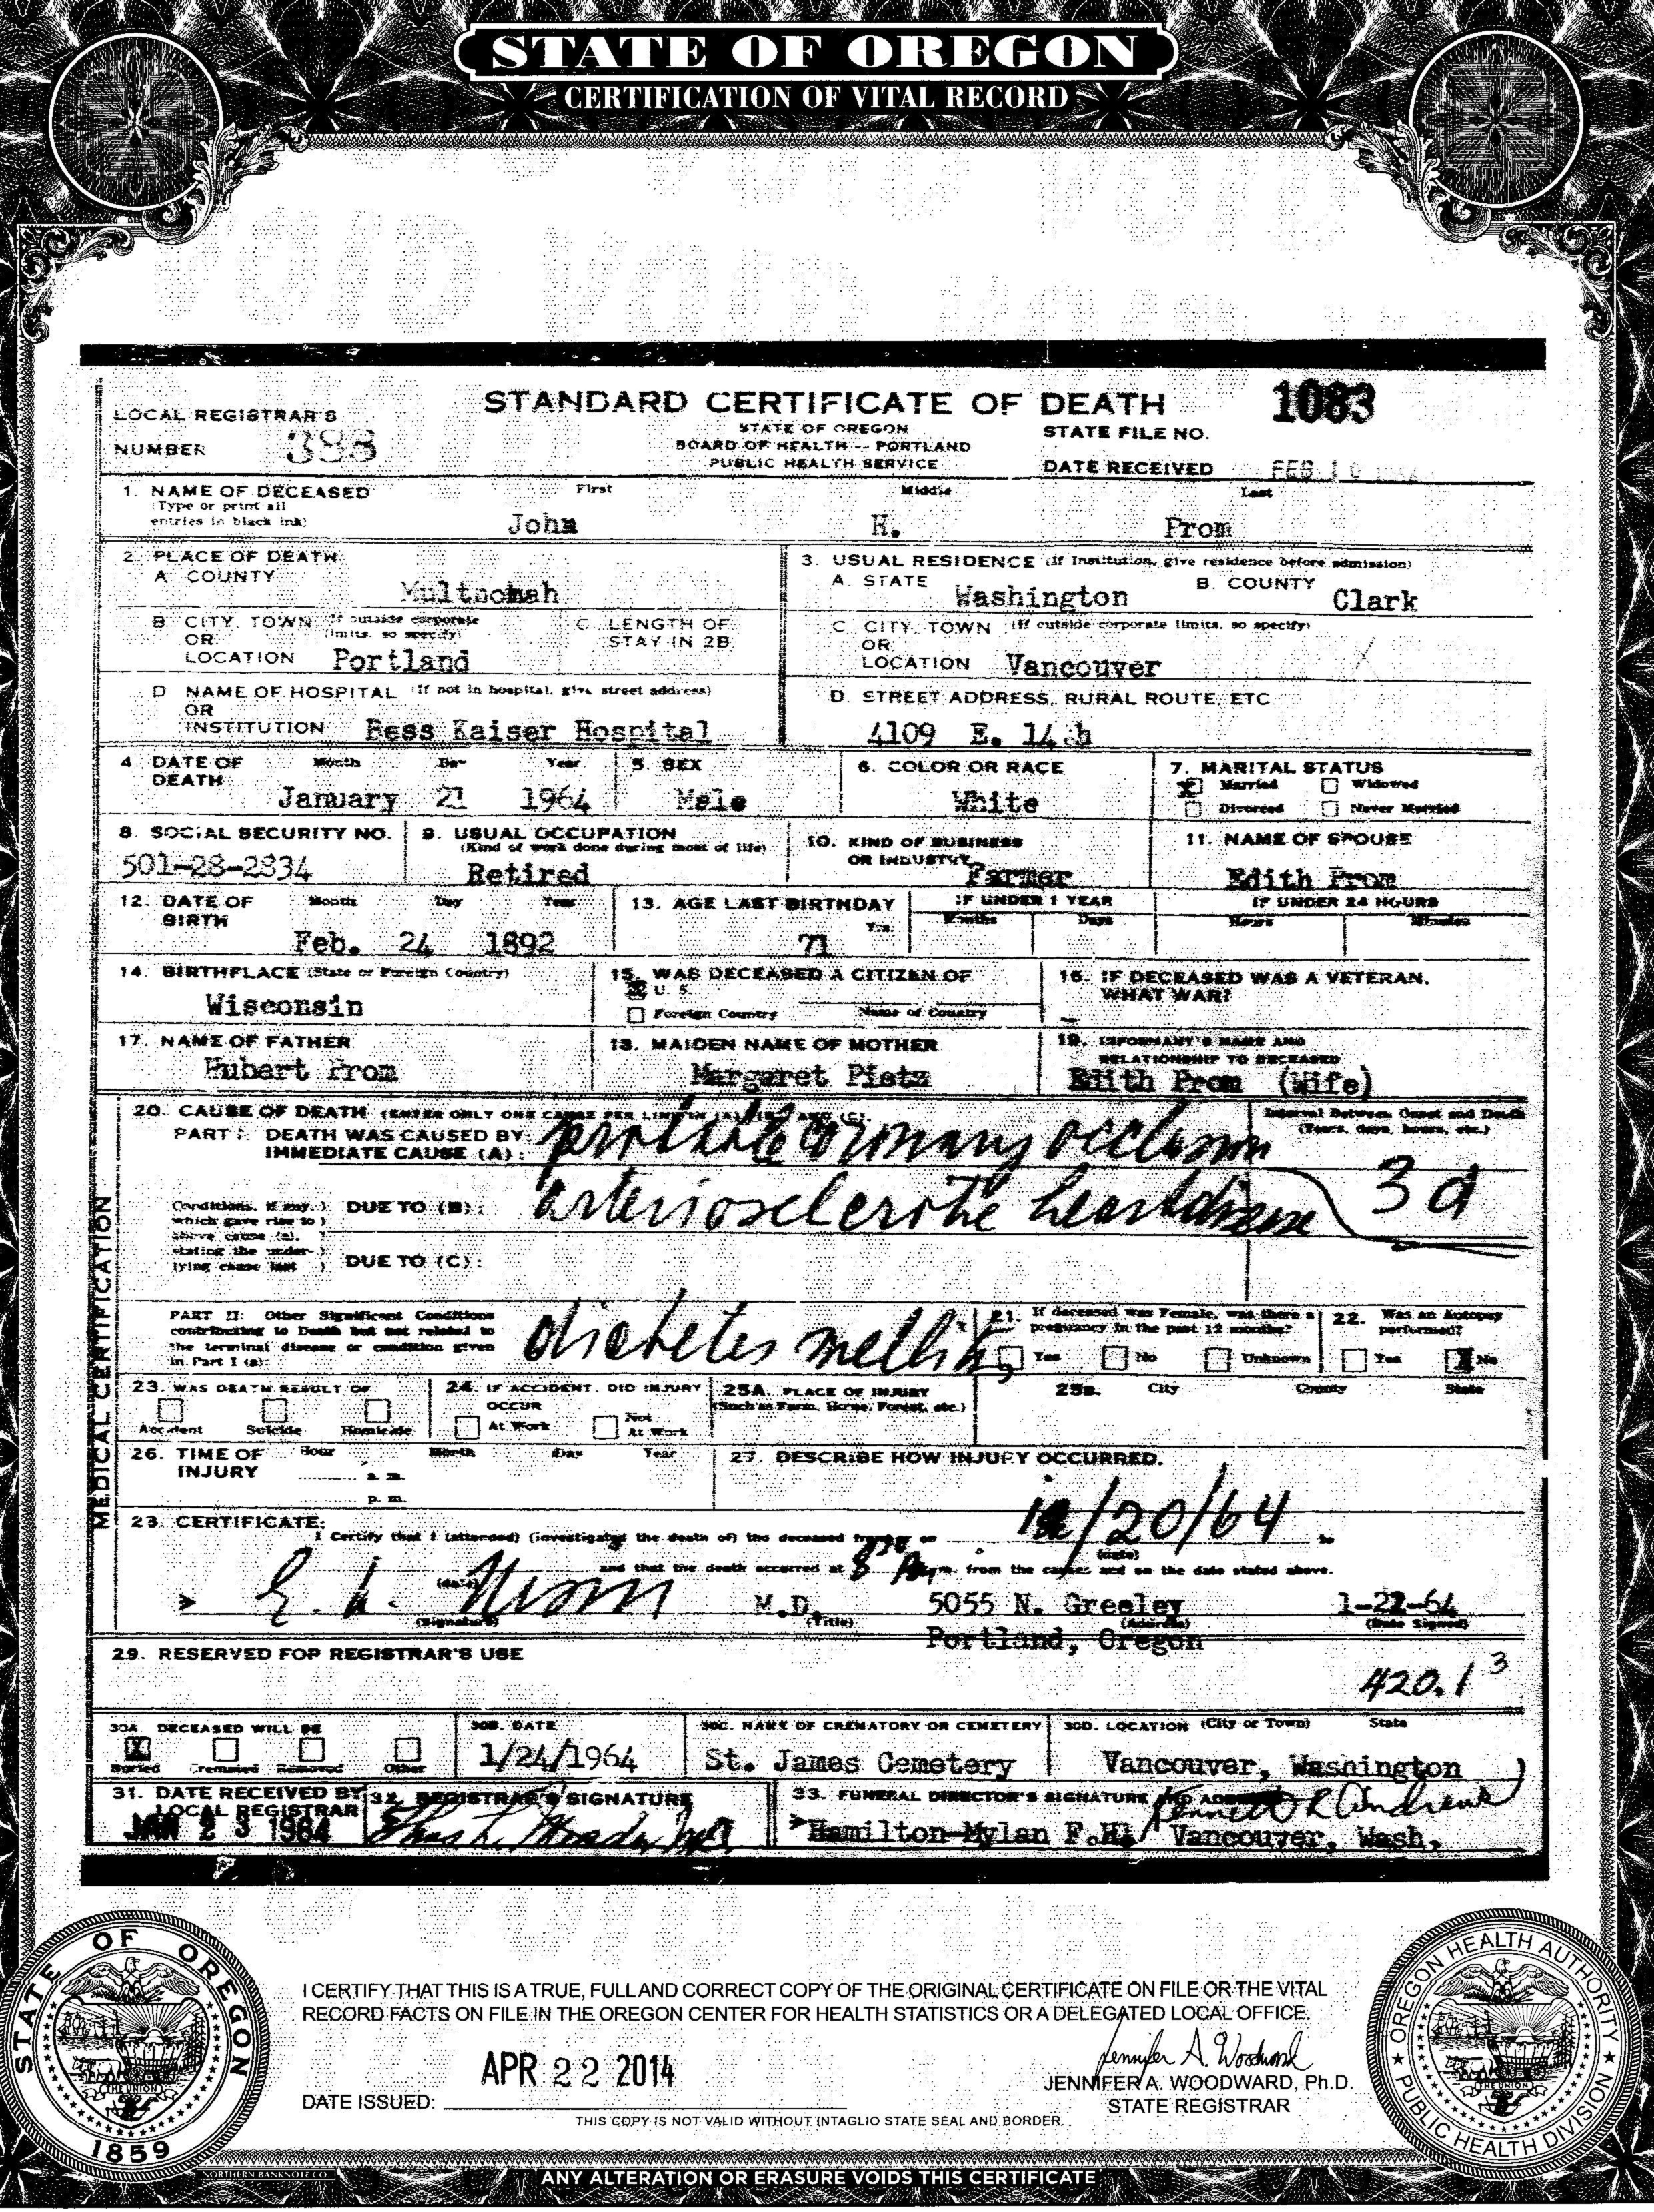 STATE OF OREGON
CERTIFICATION OF VITAL RECORD
VOID VOID
VOID VOID VOID
LOCAL REGISTRAR'S
NUMBER 383
STANDARD CERTIFICATE OF DEATH
STATE OF OREGON
BOARD OF HEALTH -- PORTLAND
PUBLIC HEALTH SERVICE
1083
STATE FILE NO.
DATE RECEIVED FEB 10
1. NAME OF DECEASED First Middle Last
(Type or print all
entries in black ink)
John H. Prom
2. PLACE OF DEATH
A. COUNTY
Multnomah
3. USUAL RESIDENCE (If Institution, give residence before admission)
A. STATE B. COUNTY
Washington Clark
B. CITY, TOWN (If outside corporate
OR limits, so specify)
LOCATION Portland
C. LENGTH OF
STAY IN 2B
C. CITY, TOWN (If outside corporate limits, so specify)
OR
LOCATION Vancouver
D. NAME OF HOSPITAL (If not in hospital, give street address)
OR
INSTITUTION Bess Kaiser Hospital
D. STREET ADDRESS, RURAL ROUTE, ETC.
4109 E. 14th
4. DATE OF DEATH Month Day Year
January 21 1964
5. SEX
Male
6. COLOR OR RACE
White
7. MARITAL STATUS
X Married Widowed
Divorced Never Married
8. SOCIAL SECURITY NO.
501-28-2334
9. USUAL OCCUPATION
(Kind of work done during most of life)
Retired
10. KIND OF BUSINESS
OR INDUSTRY
Farmer
11. NAME OF SPOUSE
Edith Prom
12. DATE OF BIRTH Month Day Year
Feb. 24 1892
13. AGE LAST BIRTHDAY
Yrs.
71
IF UNDER 1 YEAR
Months Days
IF UNDER 24 HOURS
Hours Minutes
14. BIRTHPLACE (State or Foreign Country)
Wisconsin
15. WAS DECEASED A CITIZEN OF
X U. S.
Foreign Country Name of Country
16. IF DECEASED WAS A VETERAN,
WHAT WAR?
-
17. NAME OF FATHER
Hubert Prom
18. MAIDEN NAME OF MOTHER
Margaret Pietz
19. INFORMANT'S NAME AND
RELATIONSHIP TO DECEASED
Edith Prom (Wife)
MEDICAL CERTIFICATION
20. CAUSE OF DEATH (ENTER ONLY ONE CAUSE PER LINE IN (A), (B), AND (C).
PART I: DEATH WAS CAUSED BY:
IMMEDIATE CAUSE (A): probable coronary occlusion
Interval Between Onset and Death
(Years, days, hours, etc.)
3 d
Conditions, if any, )
which gave rise to )
above cause (a), )
stating the under- )
lying cause last )
DUE TO (B): arteriosclerotic heart disease
DUE TO (C):
PART II: Other Significant Conditions
contributing to Death but not related to
the terminal disease or condition given
in Part I (a):
diabetes mellitus
21. If deceased was Female, was there a
pregnancy in the past 12 months?
Yes No Unknown
22. Was an Autopsy
performed?
Yes X No
23. WAS DEATH RESULT OF
Accident Suicide Homicide
24. IF ACCIDENT, DID INJURY
OCCUR
At Work Not At Work
25A. PLACE OF INJURY
(Such as Farm, Home, Forest, etc.)
25B. City County State
26. TIME OF INJURY Hour Month Day Year
a. m.
p. m.
27. DESCRIBE HOW INJURY OCCURRED.
28. CERTIFICATE:
I Certify that I (attended) (investigated the death of) the deceased from or on /20/64 to
(date)
(date) and that the death occurred at 8 P m. from the causes and on the date stated above.
> E. M.D. 5055 N. Greeley 1-22-64
(Signature) (Title) (Address) (Date Signed)
Portland, Oregon
29. RESERVED FOR REGISTRAR'S USE
420.1 3
30A. DECEASED WILL BE
X Buried Cremated Removed Other
30B. DATE
1/24/1964
30C. NAME OF CREMATORY OR CEMETERY
St. James Cemetery
30D. LOCATION (City or Town) State
Vancouver, Washington
31. DATE RECEIVED BY
LOCAL REGISTRAR
JAN 23 1964
32. REGISTRAR'S SIGNATURE
33. FUNERAL DIRECTOR'S SIGNATURE AND ADDRESS
Kenneth R Andrews
> Hamilton-Mylan F.H. Vancouver, Wash.
STATE OF OREGON
THE UNION
1859
I CERTIFY THAT THIS IS A TRUE, FULL AND CORRECT COPY OF THE ORIGINAL CERTIFICATE ON FILE OR THE VITAL
RECORD FACTS ON FILE IN THE OREGON CENTER FOR HEALTH STATISTICS OR A DELEGATED LOCAL OFFICE.
APR 22 2014
DATE ISSUED:
Jennifer A. Woodward
JENNIFER A. WOODWARD, Ph.D.
STATE REGISTRAR
THIS COPY IS NOT VALID WITHOUT INTAGLIO STATE SEAL AND BORDER.
OREGON HEALTH AUTHORITY
PUBLIC HEALTH DIVISION
THE UNION
NORTHERN BANKNOTE CO.
ANY ALTERATION OR ERASURE VOIDS THIS CERTIFICATE